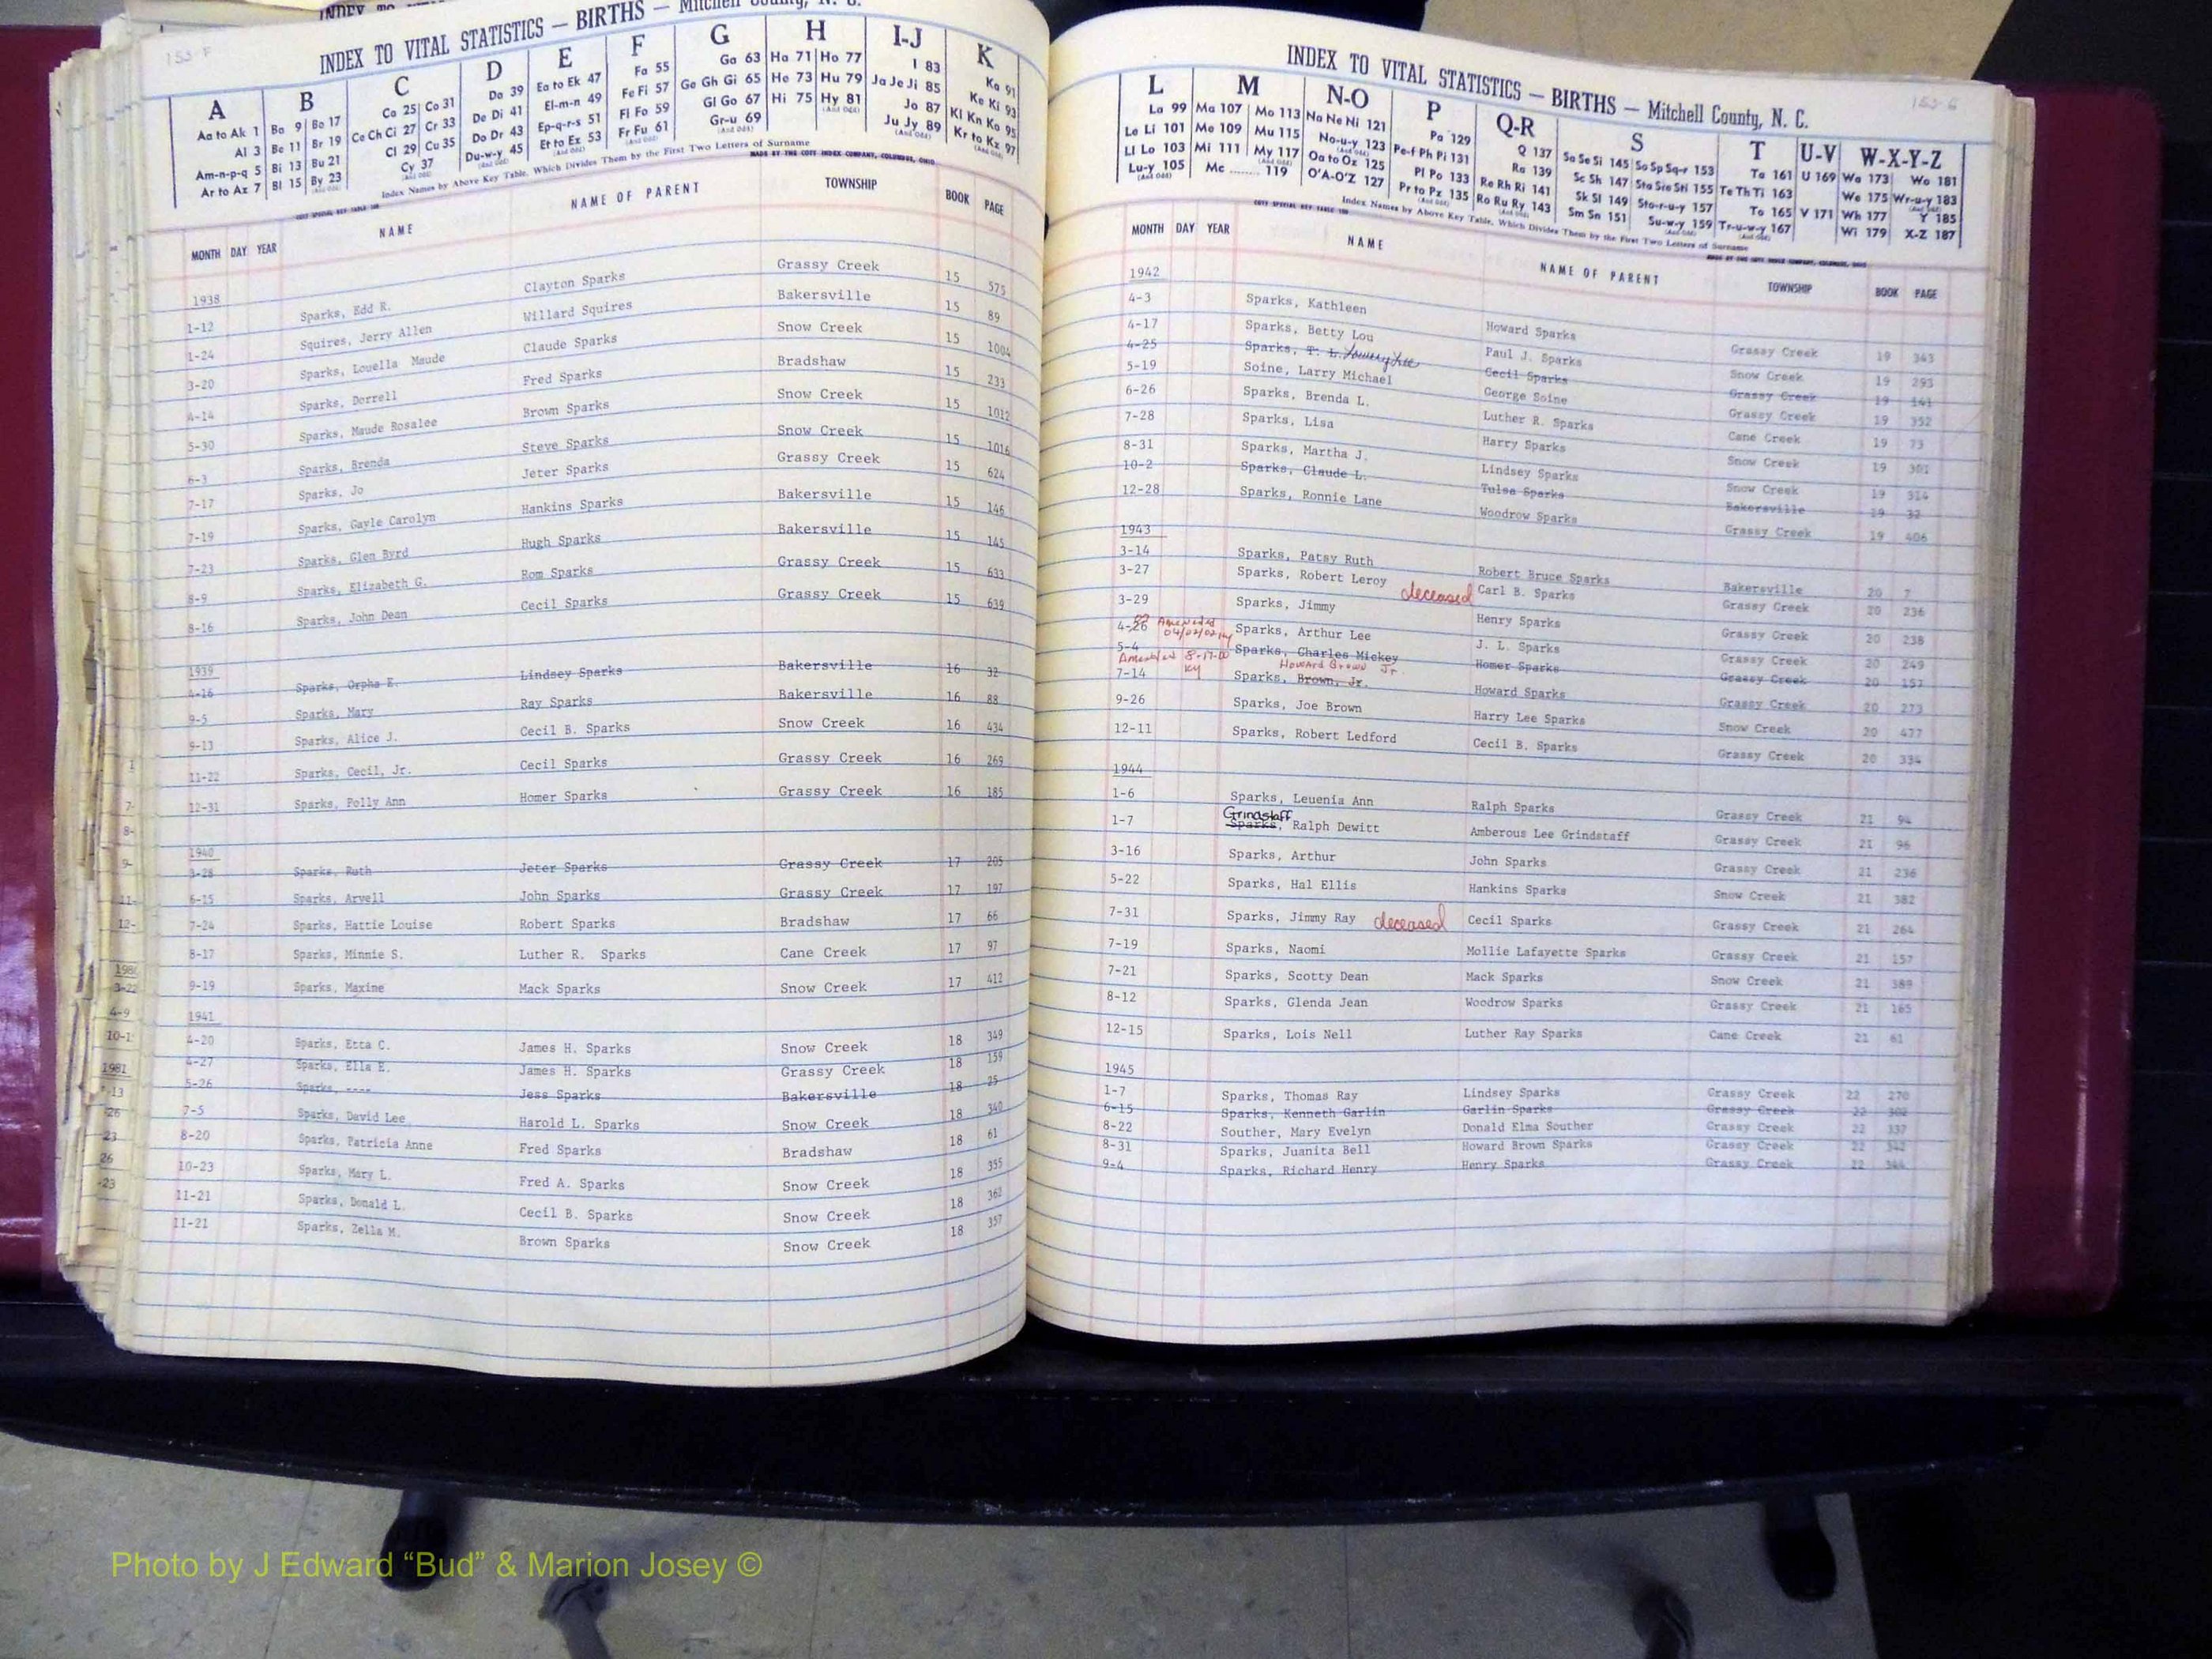 153-F
INDEX TO VITAL STATISTICS — BIRTHS — Mitchell County, N. C.
A
Aa to Ak 1
Al 3
Am-n-p-q 5
Ar to Az 7
B
Ba 9 Bo 17
Be 11 Br 19
Bi 13 Bu 21
Bl 15 By 23
C
Ca 25 Co 31
Ce Ch Ci 27 Cr 33
Cl 29 Cu 35
Cy 37
D
Da 39
De Di 41
Do Dr 43
Du-w-y 45
E
Ea to Ek 47
El-m-n 49
Ep-q-r-s 51
Et to Ez 53
F
Fa 55
Fe Fi 57
Fl Fo 59
Fr Fu 61
G
Ga 63
Ge Gh Gi 65
Gl Go 67
Gr-u 69
H
Ha 71 Ho 77
He 73 Hu 79
Hi 75 Hy 81
I-J
I 83
Ja Je Ji 85
Jo 87
Ju Jy 89
K
Ka 91
Ke Ki 93
Kl Kn Ko 95
Kr to Kz 97
Index Names by Above Key Table, Which Divides Them by the First Two Letters of Surname
MADE BY THE COTT INDEX COMPANY, COLUMBUS, OHIO
MONTH DAY YEAR NAME NAME OF PARENT TOWNSHIP BOOK PAGE
1938
1-12 Sparks, Edd R. Clayton Sparks Grassy Creek 15 575
1-24 Squires, Jerry Allen Willard Squires Bakersville 15 89
3-20 Sparks, Louella Maude Claude Sparks Snow Creek 15 1004
4-14 Sparks, Derrell Fred Sparks Bradshaw 15 233
5-30 Sparks, Maude Rosalee Brown Sparks Snow Creek 15 1012
6-3 Sparks, Brenda Steve Sparks Snow Creek 15 1016
7-17 Sparks, Jo Jeter Sparks Grassy Creek 15 624
7-19 Sparks, Gayle Carolyn Hankins Sparks Bakersville 15 146
7-23 Sparks, Glen Byrd Hugh Sparks Bakersville 15 145
8-9 Sparks, Elizabeth G. Rom Sparks Grassy Creek 15 633
8-16 Sparks, John Dean Cecil Sparks Grassy Creek 15 639
1939
4-16 Sparks, Orpha E. Lindsey Sparks Bakersville 16 32
9-5 Sparks, Mary Ray Sparks Bakersville 16 88
9-13 Sparks, Alice J. Cecil B. Sparks Snow Creek 16 434
11-22 Sparks, Cecil, Jr. Cecil Sparks Grassy Creek 16 269
12-31 Sparks, Polly Ann Homer Sparks Grassy Creek 16 185
1940
3-28 Sparks, Ruth Jeter Sparks Grassy Creek 17 205
6-15 Sparks, Arvell John Sparks Grassy Creek 17 197
7-24 Sparks, Hattie Louise Robert Sparks Bradshaw 17 66
8-17 Sparks, Minnie S. Luther R. Sparks Cane Creek 17 97
9-19 Sparks, Maxine Mack Sparks Snow Creek 17 412
1941
4-20 Sparks, Etta C. James H. Sparks Snow Creek 18 349
4-27 Sparks, Ella E. James H. Sparks Grassy Creek 18 159
5-26 Sparks, ---- Jess Sparks Bakersville 18 25
7-5 Sparks, David Lee Harold L. Sparks Snow Creek 18 340
8-20 Sparks, Patricia Anne Fred Sparks Bradshaw 18 61
10-23 Sparks, Mary L. Fred A. Sparks Snow Creek 18 355
11-21 Sparks, Donald L. Cecil B. Sparks Snow Creek 18 362
11-21 Sparks, Zella M. Brown Sparks Snow Creek 18 357
153-G
INDEX TO VITAL STATISTICS — BIRTHS — Mitchell County, N. C.
L
La 99
Le Li 101
Ll Lo 103
Lu-y 105
M
Ma 107 Mo 113
Me 109 Mu 115
Mi 111 My 117
Mc ........ 119
N-O
Na Ne Ni 121
No-u-y 123
Oa to Oz 125
O'A-O'Z 127
P
Pa 129
Pe-f Ph Pi 131
Pl Po 133
Pr to Pz 135
Q-R
Q 137
Ra 139
Re Rh Ri 141
Ro Ru Ry 143
S
Sa Se Si 145 So Sp Sq-r 153
Sc Sh 147 Sta Ste Sti 155
Sk Sl 149 Sto-r-u-y 157
Sm Sn 151 Su-w-y 159
T
Ta 161
Te Th Ti 163
To 165
Tr-u-w-y 167
U-V
U 169
V 171
W-X-Y-Z
Wa 173 Wo 181
We 175 Wr-u-y 183
Wh 177 Y 185
Wi 179 X-Z 187
Index Names by Above Key Table, Which Divides Them by the First Two Letters of Surname
MADE BY THE COTT INDEX COMPANY, COLUMBUS, OHIO
MONTH DAY YEAR NAME NAME OF PARENT TOWNSHIP BOOK PAGE
1942
4-3 Sparks, Kathleen Howard Sparks Grassy Creek 19 343
4-17 Sparks, Betty Lou Paul J. Sparks Snow Creek 19 293
4-25 Sparks, T. L. Cecil Sparks Grassy Creek 19 141
5-19 Soine, Larry Michael George Soine Grassy Creek 19 352
6-26 Sparks, Brenda L. Luther R. Sparks Cane Creek 19 73
7-28 Sparks, Lisa Harry Sparks Snow Creek 19 301
8-31 Sparks, Martha J. Lindsey Sparks Snow Creek 19 314
10-2 Sparks, Claude L. Tulse Sparks Bakersville 19 32
12-28 Sparks, Ronnie Lane Woodrow Sparks Grassy Creek 19 406
1943
3-14 Sparks, Patsy Ruth Robert Bruce Sparks Bakersville 20 7
3-27 Sparks, Robert Leroy deceased Carl B. Sparks Grassy Creek 20 236
3-29 Sparks, Jimmy Henry Sparks Grassy Creek 20 238
4-26 Amended 04/02/02 Sparks, Arthur Lee J. L. Sparks Grassy Creek 20 249
5-4 Sparks, Charles Mickey Homer Sparks Grassy Creek 20 157
Amended 8-17-00 Ky Howard Brown Jr.
7-14 Sparks, Brown, Jr. Howard Sparks Grassy Creek 20 273
9-26 Sparks, Joe Brown Harry Lee Sparks Snow Creek 20 477
12-11 Sparks, Robert Ledford Cecil B. Sparks Grassy Creek 20 334
1944
1-6 Sparks, Leuenia Ann Ralph Sparks Grassy Creek 21 94
Grindstaff
1-7 Sparks, Ralph Dewitt Amberous Lee Grindstaff Grassy Creek 21 96
3-16 Sparks, Arthur John Sparks Grassy Creek 21 236
5-22 Sparks, Hal Ellis Hankins Sparks Snow Creek 21 382
7-31 Sparks, Jimmy Ray deceased Cecil Sparks Grassy Creek 21 264
7-19 Sparks, Naomi Mollie Lafayette Sparks Grassy Creek 21 157
7-21 Sparks, Scotty Dean Mack Sparks Snow Creek 21 389
8-12 Sparks, Glenda Jean Woodrow Sparks Grassy Creek 21 165
12-15 Sparks, Lois Nell Luther Ray Sparks Cane Creek 21 61
1945
1-7 Sparks, Thomas Ray Lindsey Sparks Grassy Creek 22 270
6-15 Sparks, Kenneth Garlin Garlin Sparks Grassy Creek 22 302
8-22 Souther, Mary Evelyn Donald Elma Souther Grassy Creek 22 337
8-31 Sparks, Juanita Bell Howard Brown Sparks Grassy Creek 22 342
9-4 Sparks, Richard Henry Henry Sparks Grassy Creek 22 344
Photo by J Edward “Bud” & Marion Josey ©